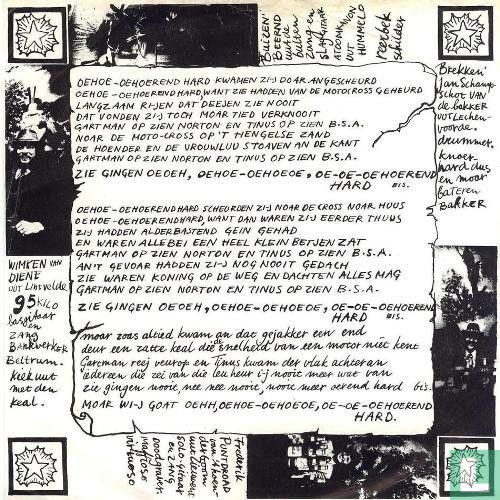 'BUIZEN'
BEERND
uut de
buiten
zang en
SLAGGITAAR
UUT
HUMMELO
reebok
schilder
OEHOE-OEHOEREND HARD KWAMEN ZIJ DOAR ANGESCHEURD
OEHOE-OEHOEREND HARD, WANT ZIE HADDEN VAN DE MOTOCROSS GEHEURD
LANGZAAM RIJEN DAT DEEJEN ZIE NOOIT
DAT VONDEN ZIJ TOCH MOAR TIED VERKNOOIT
GARTMAN OP ZIEN NORTON EN TINUS OP ZIEN B.S.A.
NOAR DE MOTO-CROSS OP 'T HENGELSE ZAND
DE HOENDER EN DE VROUWLUU STOAVEN AN DE KANT
GARTMAN OP ZIEN NORTON EN TINUS OP ZIEN B.S.A.
ZIE GINGEN OEOEH, OEHOE-OEHOEOE, OE-OE-OEHOEREND
HARD BIS.
OEHOE-OEHOEREND HARD SCHEURDEN ZIJ NOAR DE CROSS NOAR HUUS
OEHOE-OEHOERENDHARD, WANT DAN WAREN ZIJ EERDER THUUS
ZIJ HADDEN ALDERBASTEND GEIN GEHAD
EN WAREN ALLEBEI EEN HEEL KLEIN BETJEN ZAT
GARTMAN OP ZIEN NORTON EN TINUS OP ZIEN B.S.A.
AN'T GEVOAR HADDEN ZIJ NOG NOOIT GEDACH
ZIE WAREN KONING OP DE WEG EN DACHTEN ALLES MAG
GARTMAN OP ZIEN NORTON EN TINUS OP ZIEN B.S.A.
ZIE GINGEN OEOEH, OEHOE-OEHOEOE, OE-OE-OEHOEREND
HARD BIS.
moar zoas altied kwam an dat gejakker een end
deur een zatte keal die de snelheid van een motor niet kent
Gartman reej veurop en Tinus kwam der vlak achteran
Iedereen die zei van die leu heur ij nooit meer wat van
zie gingen nooit, nee nee nooit, nooit meer oerend hard bis.
MOAR WI-J GOAT OEHH, OEHOE-OEHOEOE, OE-OE-OEHOEREND
HARD.
'Brekken'
Jan Schamp-
schot VAN
de bakker
uut Lechen-
voorde.
drummer.
knoer-
hard dus
en moar
bateren
BAKKER
WIMKEN VAN
DIENE
uut Lintvelde
95 KILO
basgitaar
en
ZANG
BANKWERKER
Beltrum.
Kiek uut
met den
keal.
Frederik
PUNTDROAD
van 't ven-
der Boom
uut de leuvert
solo-gitaar
en ZANG
doodgraver.
maffioso
virtuoso